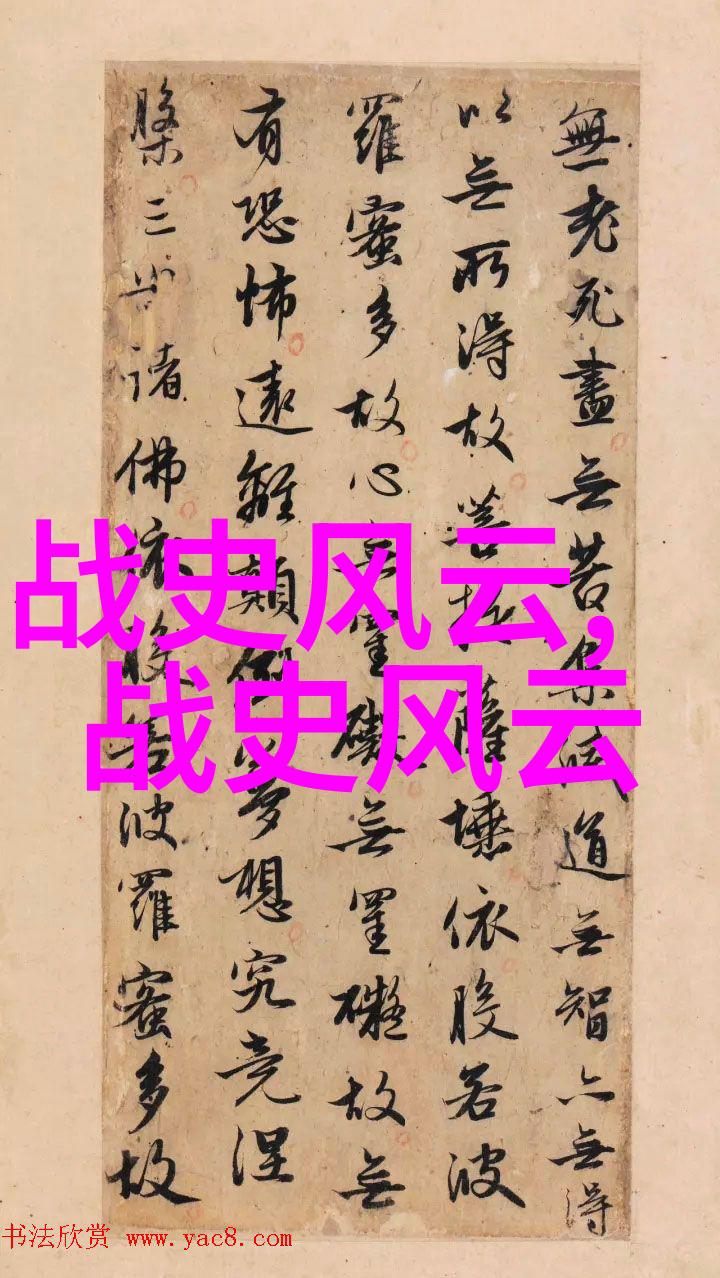 無老死盡無苦集滅道無智亦無得
以無所得故菩提薩埵依般若波
羅蜜多故心無罣礙無罣礙故無
有恐怖遠離顛倒夢想究竟涅
槃三世諸佛依般若波羅蜜多故
战史风云,
战史风云
书法欣赏 www.yac8.com